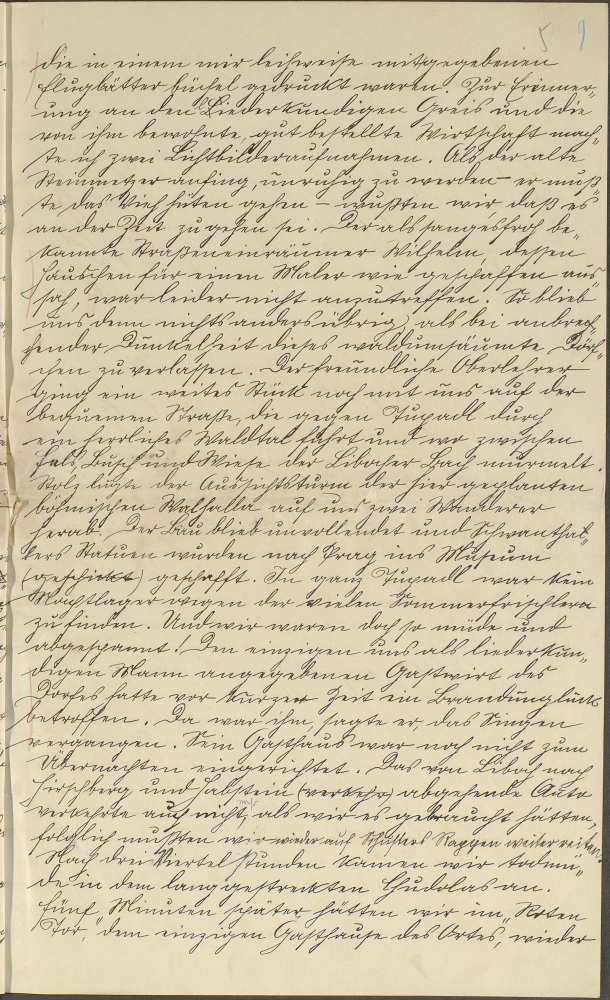 5 9
die in einem mir leihweise mitgegebenen
Flugblätterbüchel gedruckt waren. Zur Erinner„
ung an den Liederkundigen Greis und die
von ihm bewohnte, gut bestellte Wirtschaft mach„
te ich zwei Lichtbilderaufnahmen. Als der alte
Steinmetzer anfing, unruhig zu werden – er muß„
te das Vieh hüten gehen – wußten wir daß es
an der Zeit zu gehen sei. Der als sangesfroh be„
kannte Straßeneinräumer Wilhelm, dessen
Häuschen für einen Maler wie geschaffen aus„
sah, war leider nicht anzutreffen. So blieb
uns denn nichts anders übrig, als bei anbrech„
hender Dunkelheit dieses waldumsäumte Dörf„
chen zu verlassen. Der freundliche Oberlehrer
ging ein weites Stück noch mit uns auf der
bequemen Straße, die gegen Tupadl durch
ein herrliches Waldtal führt und wo zwischen
Fels, Busch und Wiese der Libocher Bach murmelt.
Stolz lugte der Aussichtsturm der hier geplanten
böhmischen Walhalla auf uns zwei Wanderer
herab. Der Bau blieb unvollendet und Schwanthal„
lers Statuen wurden nach Prag ins Museum
(geschickt) geschafft. In ganz Tupadl war kein
Nachtlager wegen der vielen Sommerfrischlern
zu finden. Und wir waren doch so müde und
abgespannt. Den einzigen uns als liederkun„
digen Mann angegebenen Gastwirt des
Dorfes hatte vor kurzer Zeit ein Brandunglück
betroffen. Da war ihm, sagte er, das Singen
vergangen. Sein Gasthaus war noch nicht zum
Übernachten eingerichtet. Das von Liboch nach
Hirschberg und Habstein (verkehr) abgehende Auto
verkehrte auch nicht, als wir es gebraucht hätten,
folglich mußten wir wieder auf Schusters Rappen weiter reiten.
Nach drei Viertel stunden kamen wir todmü„
de in dem langgestreckten Chudolas an.
Fünf Minuten später hätten wir im „Roten
Tor, dem einzigen Gasthause des Ortes, wieder